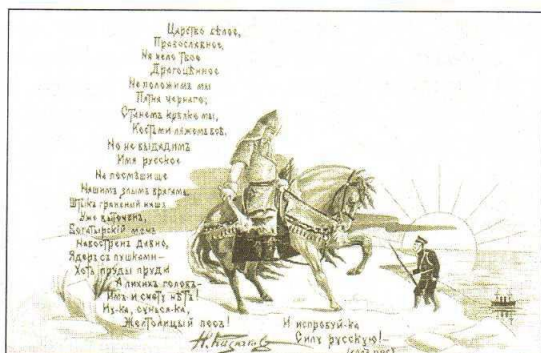 Царство бѣлое,
Православное,
На чело твое
Драгоцѣнное
Не положимъ мы
Пятна чернаго;
Станемъ крѣпко мы,
Костьми ляжемъ всѣ,
Но не выдадимъ
Имя русское
На посмѣшище
Нашимъ злымъ врагамъ.
Штыкъ граненый нашъ
Уже выточенъ,
Богатырскій мечъ
Навостренъ давно,
Ядеръ съ пушками—
Хоть пруды пруди
А лихихъ головъ—
Имъ и счету нѣтъ!
Ну-ка, сунься-ка,
Желтолицый песъ!
И испробуй-ка
Силу русскую!—